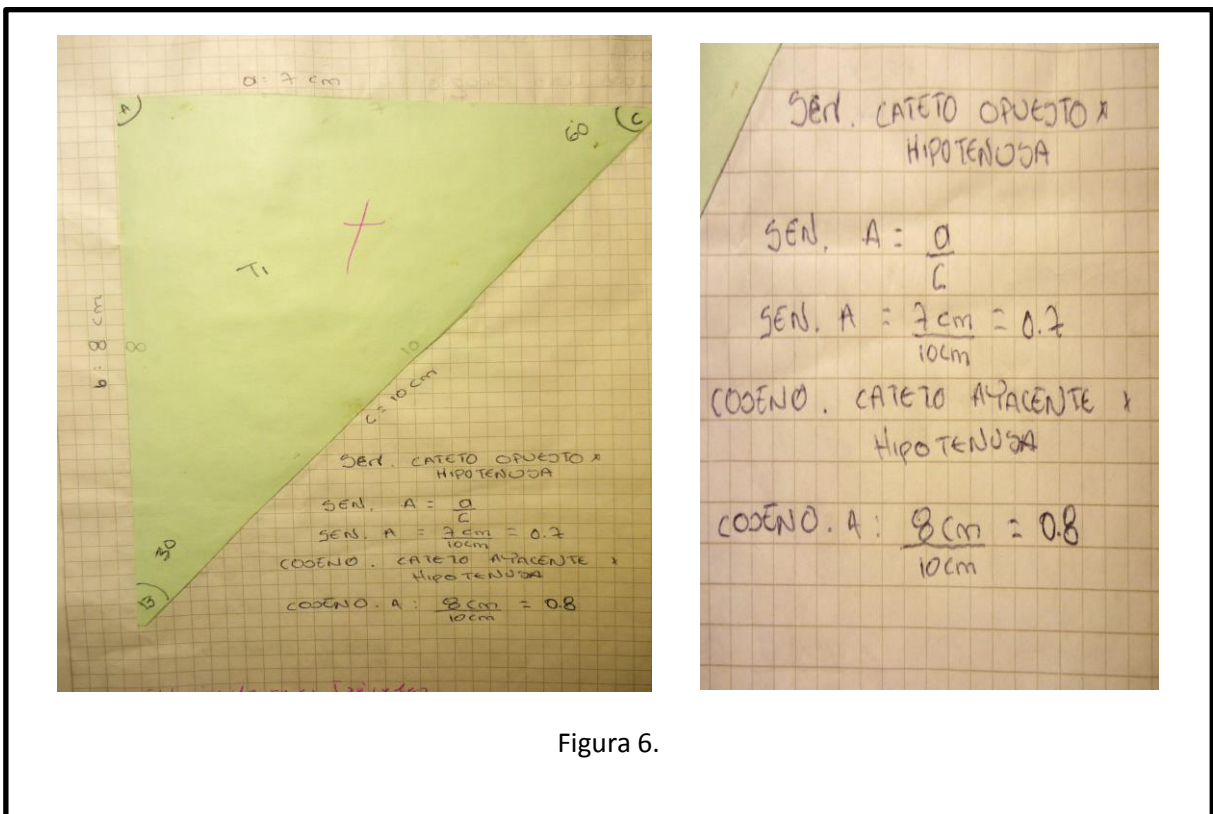 a: 7 cm
A
60
C
T1
b: 8 cm
8
10
c = 10 cm
30
B
SEN. CATETO OPUESTO x
HIPOTENUSA
SEN. A = a
C
SEN. A = 7 cm = 0.7
10cm
COSENO. CATETO AYACENTE x
HIPOTENUSA
COSENO. A: 8 cm = 0.8
10cm
SEN. CATETO OPUESTO x
HIPOTENUSA
SEN. A = a
C
SEN. A = 7 cm = 0.7
10cm
COSENO. CATETO AYACENTE x
HIPOTENUSA
COSENO. A: 8 cm = 0.8
10cm
Figura 6.